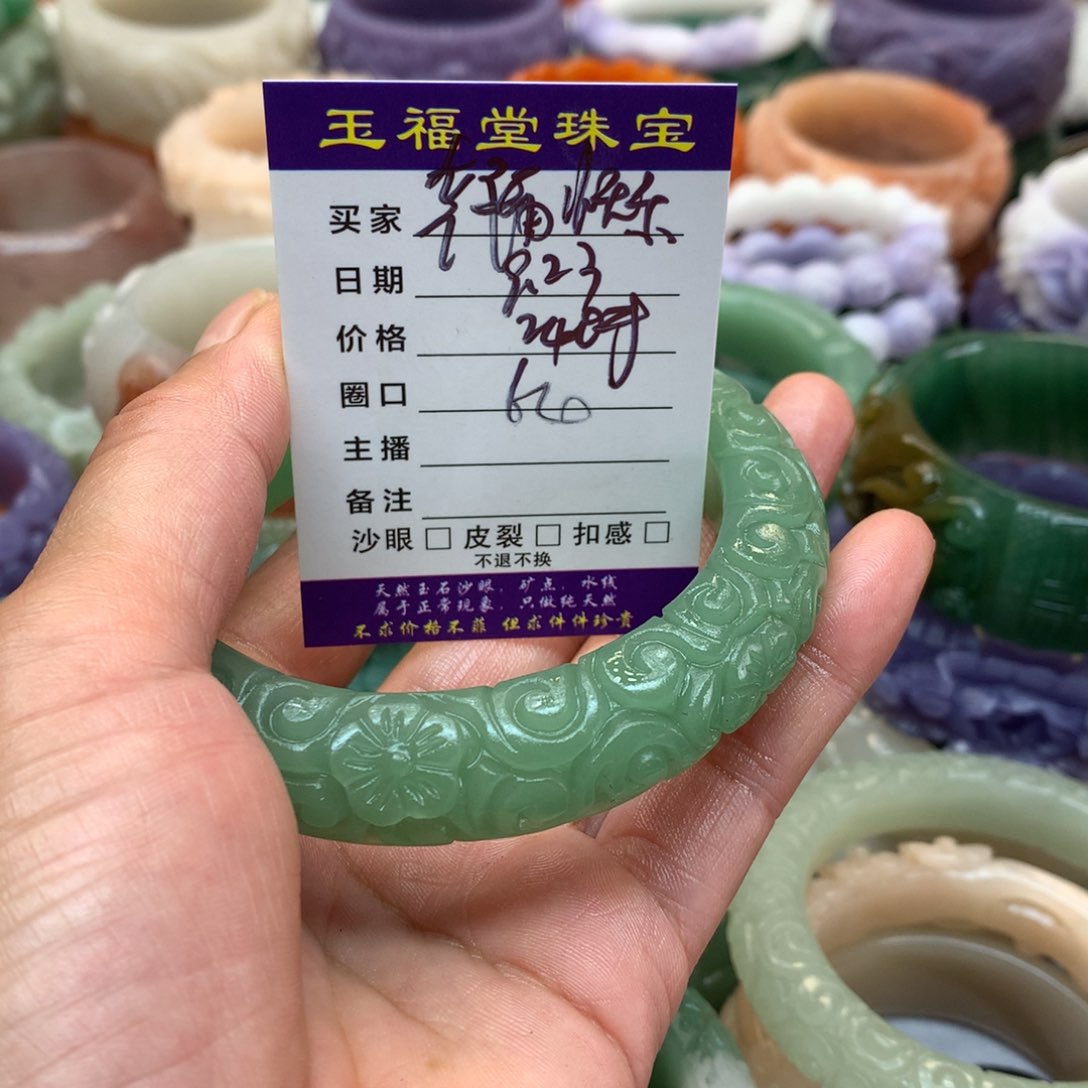 玉福堂珠宝
买家 幸福快乐
日期 9.23
价格
圈口
主播
备注
沙眼 □ 皮裂 □ 扣感 □
不退不换
天然玉石沙眼．矿点．水线
属于正常现象．只做纯天然
不求价格不菲 但求件件珍贵